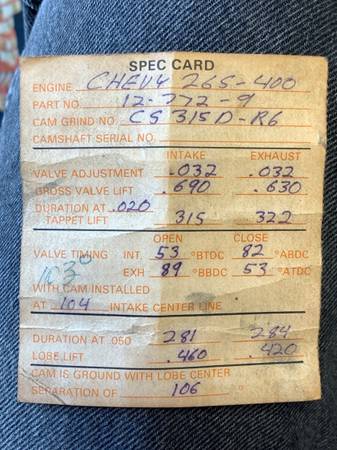 SPEC CARD
ENGINE CHEVY 265-400
PART NO. 12-772-9
CAM GRIND NO. CS 315D-R6
CAMSHAFT SERIAL NO.
INTAKE EXHAUST
VALVE ADJUSTMENT .032 .032
GROSS VALVE LIFT .690 .630
DURATION AT .020
TAPPET LIFT 315 322
OPEN CLOSE
VALVE TIMING INT. 53 °BTDC 82 °ABDC
103° EXH 89 °BBDC 53 °ATDC
WITH CAM INSTALLED
AT 104 INTAKE CENTER LINE
DURATION AT .050 281 284
LOBE LIFT .460 .420
CAM IS GROUND WITH LOBE CENTER
SEPARATION OF 106 °